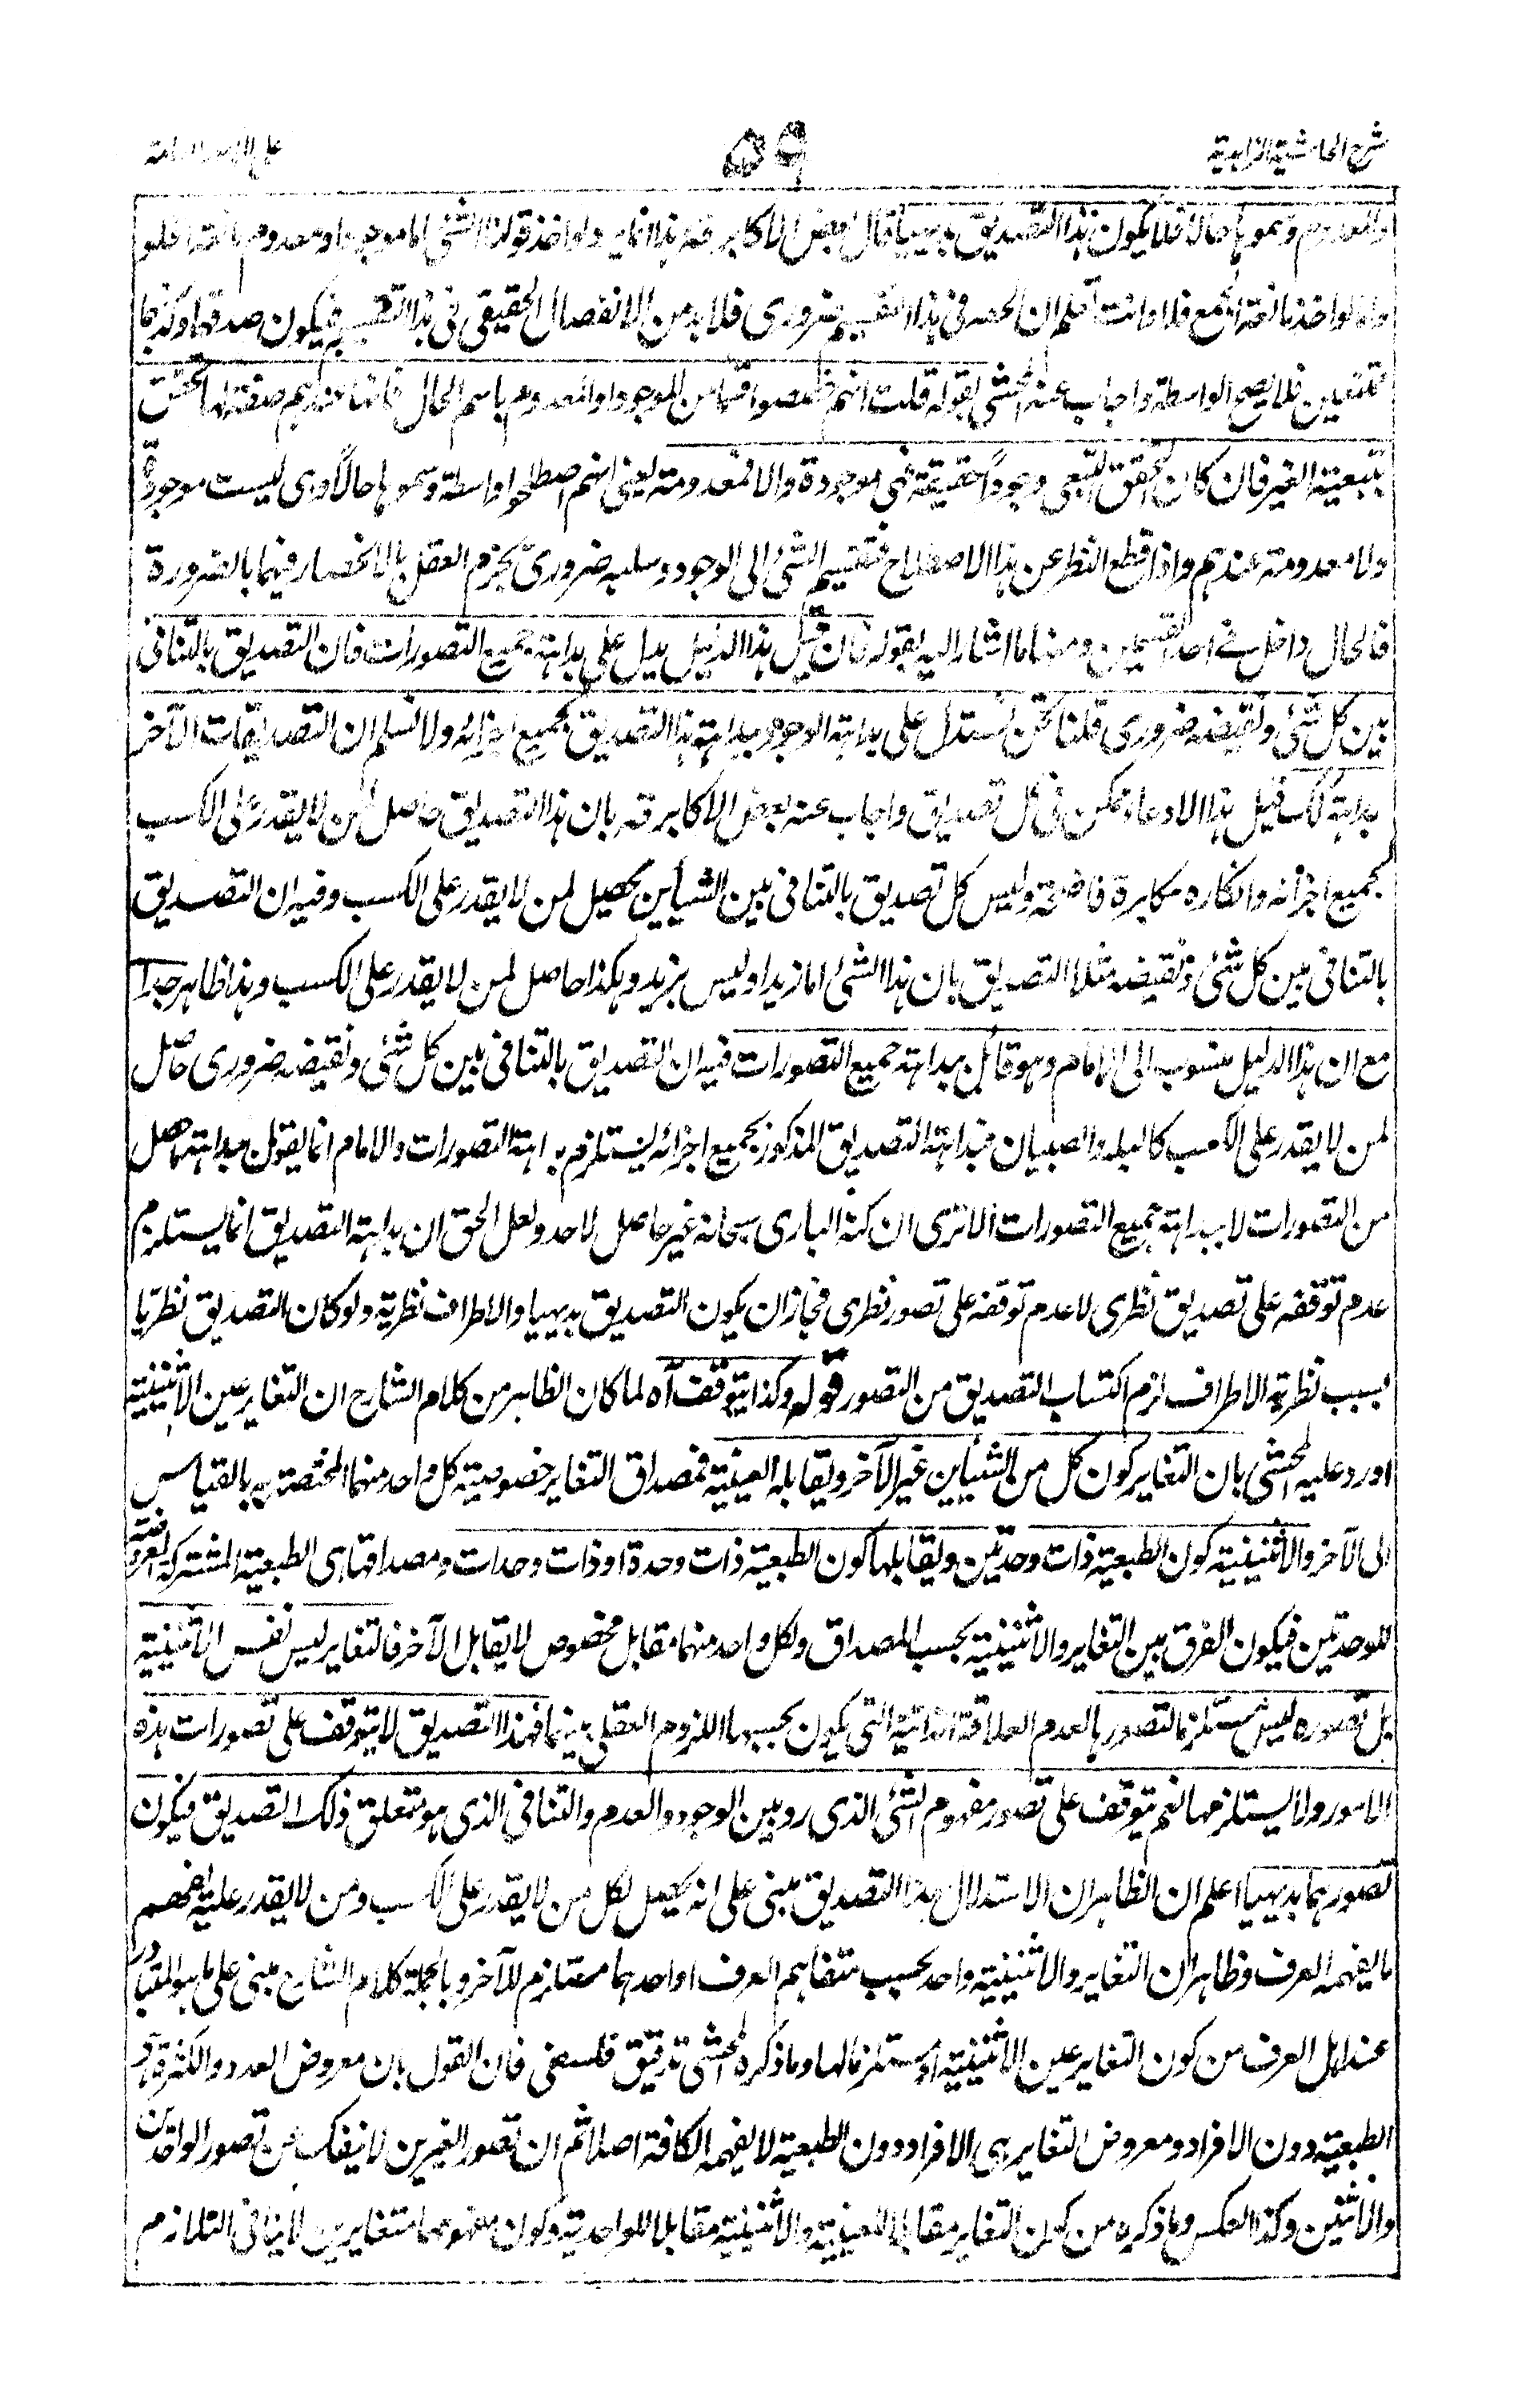 شرح الحاشية الزاهدية ٥٩ على الامور العامة
والمعدوم وسموها حالا فلا يكون هذا التصديق بديهيا قال بعض الاكابر قده هذا انما يرد لو اخذ قولنا الشئ اما موجود او معدوم مانعة الخلو
واما لو اخذ مانعة الجمع فلا وانت تعلم ان الحصر في هذا التقسيم ضروري فلا بد من الانفصال الحقيقي في هذا التقسيم فيكون صدقهما وكذبهما
ممتنعين فلا يصح الواسطة واجاب عنه المحشي بقوله قلت انهم خصصوا قسما من الموجود او المعدوم باسم الحال فانها عندهم صفة لها تحقق
بتبعية الغير فان كان التحقق التبعي وجودًا حقيقة فهي موجودة والا فمعدومة يعني انهم اصطلحوا واسطة وسموها حالاً وهي ليست موجودة
ولا معدومة عندهم واذا قطع النظر عن هذا الاصطلاح فتقسيم الشئ الى الوجود وسلبه ضروري يجزم العقل بالانحصار فيهما بالضرورة
فالحال داخل في احد القسمين ومنها ما اشار اليه بقوله فان قيل هذا الدليل يدل على بداهة جميع التصورات فان التصديق بالتنافي
بين كل شئ ونقيضه ضروري قلنا نحن نستدل على بداهة الوجود ببداهة هذا التصديق بجميع اجزائه ولا نسلم ان التصديقات الآخر
بداهة كك قيل هذا الادعاء ممكن في كل تصديق واجاب عنه بعض الاكابر قده بان هذا التصديق حاصل لمن لا يقدر على الكسب
بجميع اجزائه وانكاره مكابرة فاضحة وليس كل تصديق بالتنافي بين الشيأين يحصل لمن لا يقدر على الكسب وفيه ان التصديق
بالتنافي بين كل شئ ونقيضه مثلا التصديق بان هذا الشئ اما زيد او ليس بزيد وهكذا حاصل لمن لا يقدر على الكسب وهذا ظاهر جدا
مع ان هذا الدليل منسوب الى الامام وهو قائل ببداهة جميع التصورات فيه ان التصديق بالتنافي بين كل شئ ونقيضه ضروري حاصل
لمن لا يقدر على الكسب كالبله والصبيان فبداهة التصديق المذكور بجميع اجزائه يستلزم بداهة التصورات والامام انما يقول ببداهة ما حصل
من التصورات لا ببداهة جميع التصورات الا ترى ان كنه الباري سبحانه غير حاصل لاحد ولعل الحق ان بداهة التصديق انما يستلزم
عدم توقفه على تصديق نظري لا عدم توقفه على تصور نظري فجاز ان يكون التصديق بديهيا والاطراف نظرية ولو كان التصديق نظريا
بسبب نظرية الاطراف لزم اكتساب التصديق من التصور قوله وكذا يتوقف آه لما كان الظاهر من كلام الشارح ان التغاير عين الاثنينية
اورد عليه المحشي بان التغاير كون كل من الشيأين غير الآخر ويقابله العينية فمصداق التغاير خصوصية كل واحد منهما المختصة به بالقياس
الى الآخر والاثنينية كون الطبعية ذات وحدتين ويقابلها كون الطبعية ذات وحدة او ذات وحدات ومصداقها هي الطبعية المشتركة المعروضة
للوحدتين فيكون الفرق بين التغاير والاثنينية بحسب المصداق ولكل واحد منهما مقابل مخصوص لا يقابل الآخر فالتغاير ليس نفس الاثنينية
بل تصوره ليس مستلزما لتصورها لعدم العلاقة الذاتية التي يكون بحسبها اللزوم العقلي بينهما فهذا التصديق لا يتوقف على تصورات هذه
الامور ولا يستلزمها نعم يتوقف على تصور مفهوم الشئ الذي ردد بين الوجود والعدم والتنافي الذي هو متعلق ذلك التصديق فيكون
تصورهما بديهيا اعلم ان الظاهر ان الاستدلال بهذا التصديق مبني على انه يحصل لكل من لا يقدر على الكسب ومن لا يقدر عليه يفهم
ما يفهمه العرف وظاهر ان التغاير والاثنينية واحد بحسب متفاهم العرف او احدهما مستلزم للآخر وبالجملة كلام الشارح مبني على ما هو المتبادر
عند اهل العرف من كون التغاير عين الاثنينية او مستلزما لها وما ذكره المحشي تدقيق فلسفي فان القول بان معروض العدد والكثرة هو
الطبعية دون الافراد ومعروض التغاير هي الافراد دون الطبعية لا يفهمه الكافة اصلا ثم ان تصور الغيرين لا ينفك عن تصور الواحدين
والاثنين وكذا العكس وما ذكره من كون التغاير مقابلا للعينية والاثنينية مقابلا للواحدية وكون مفهومهما متغايرين لا ينافي التلازم